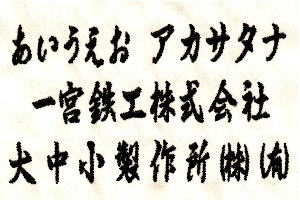 あいうえお アカサタナ
一宮鉄工株式会社
大中小製作所㈱㈲